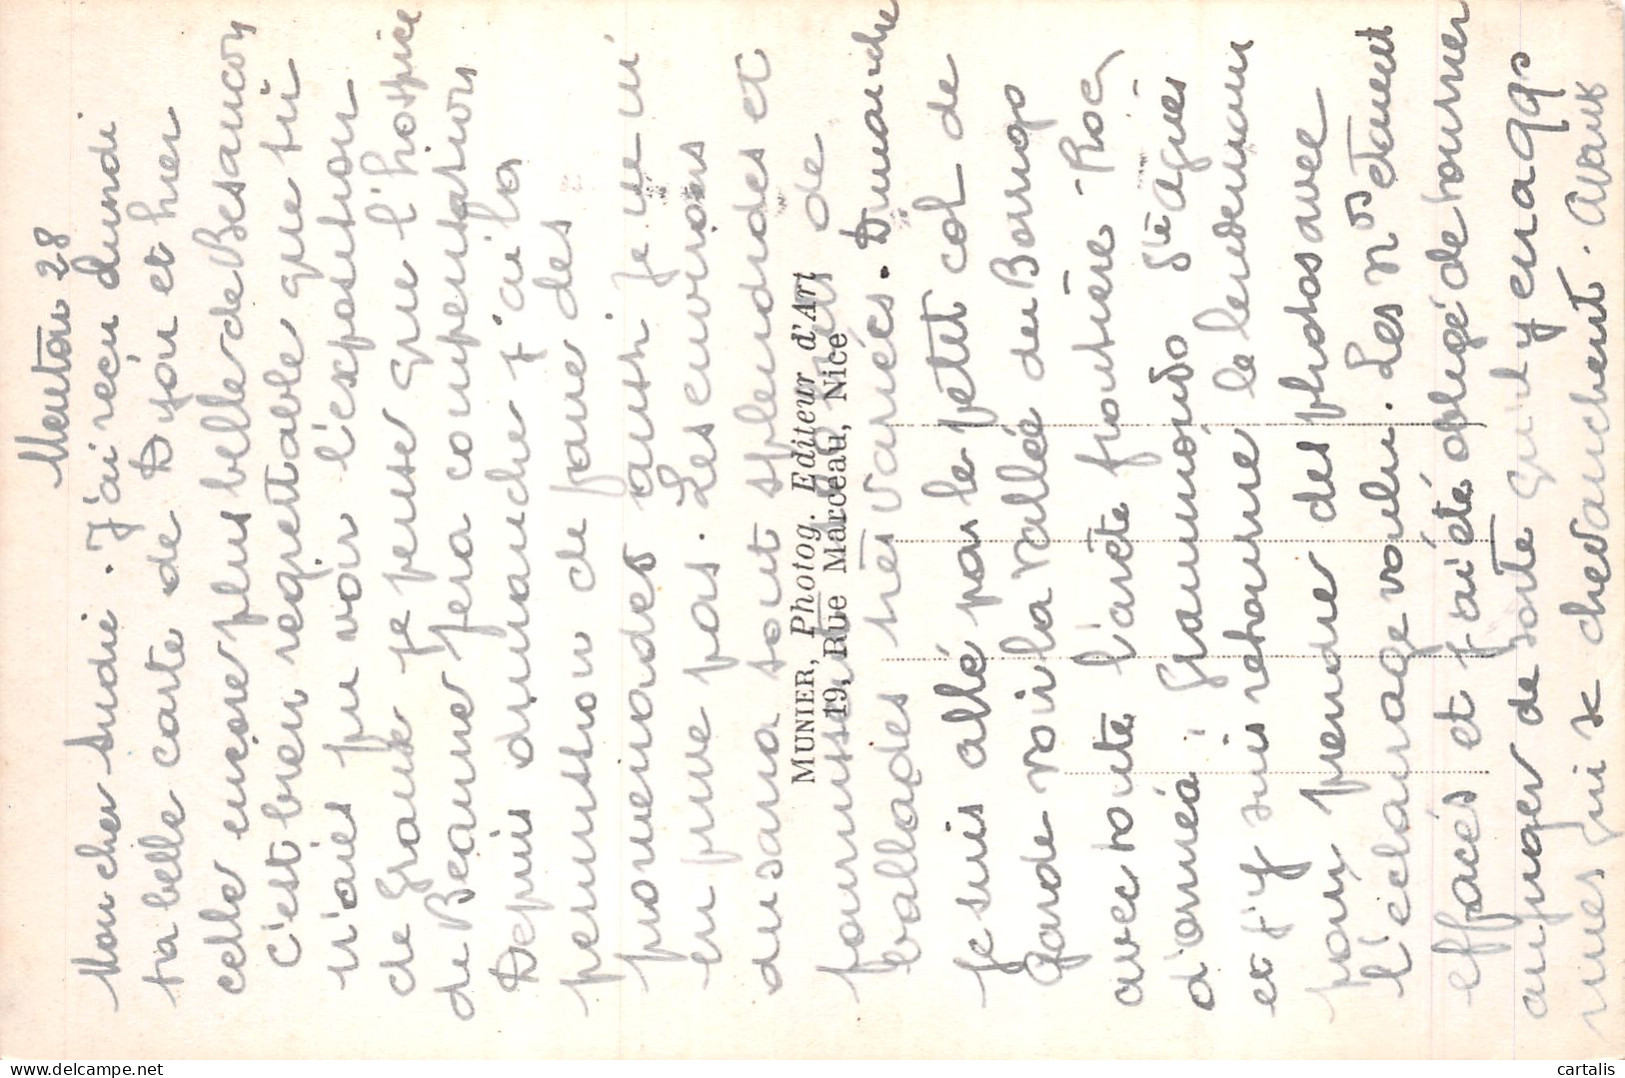 Menton 28
Mon cher André. J'ai reçu lundi
ta belle carte de Dijon et hier
celle encore plus belle de Besançon
c'est bien regrettable que tu
n'aies pu voir l'exposition
de Groult je pense que l'hospice
de Beaune fera compensation
Depuis dimanche j'ai la
permission de faire des
promenades aussi je ne m'
en prive pas. Les environs
du sana sont splendides et
fournissent de
ballades très variées. Dimanche
je suis allé par le petit col de
Garde voir la vallée du Borrigo
avec toute l'arête frontière - Roc
d'Orméa, Grammondo Ste Agnès
et j'y suis retourné le lendemain
pour prendre des photos avec
l'éclairage voulu. Les nos étaient
effacés et j'ai été obligé de tourner
au juger de sorte qu'il y en a qqs
unes qui se chevauchent. Avant
MUNIER, Photog. Editeur d'Art
19, Rue Marceau, Nice
cartalis